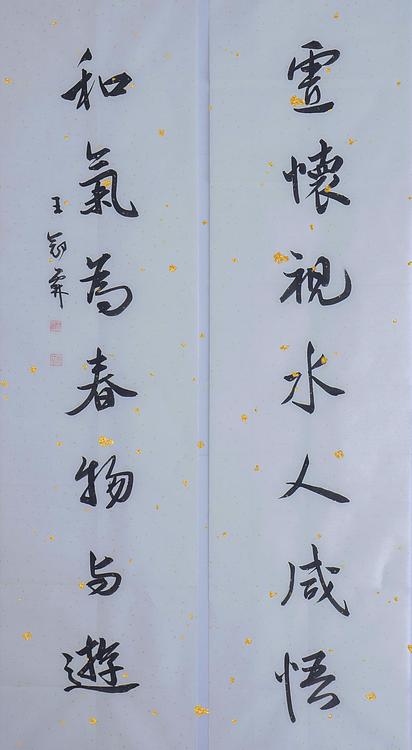 虚懷視水人咸悟
和氣為春物与遊
王